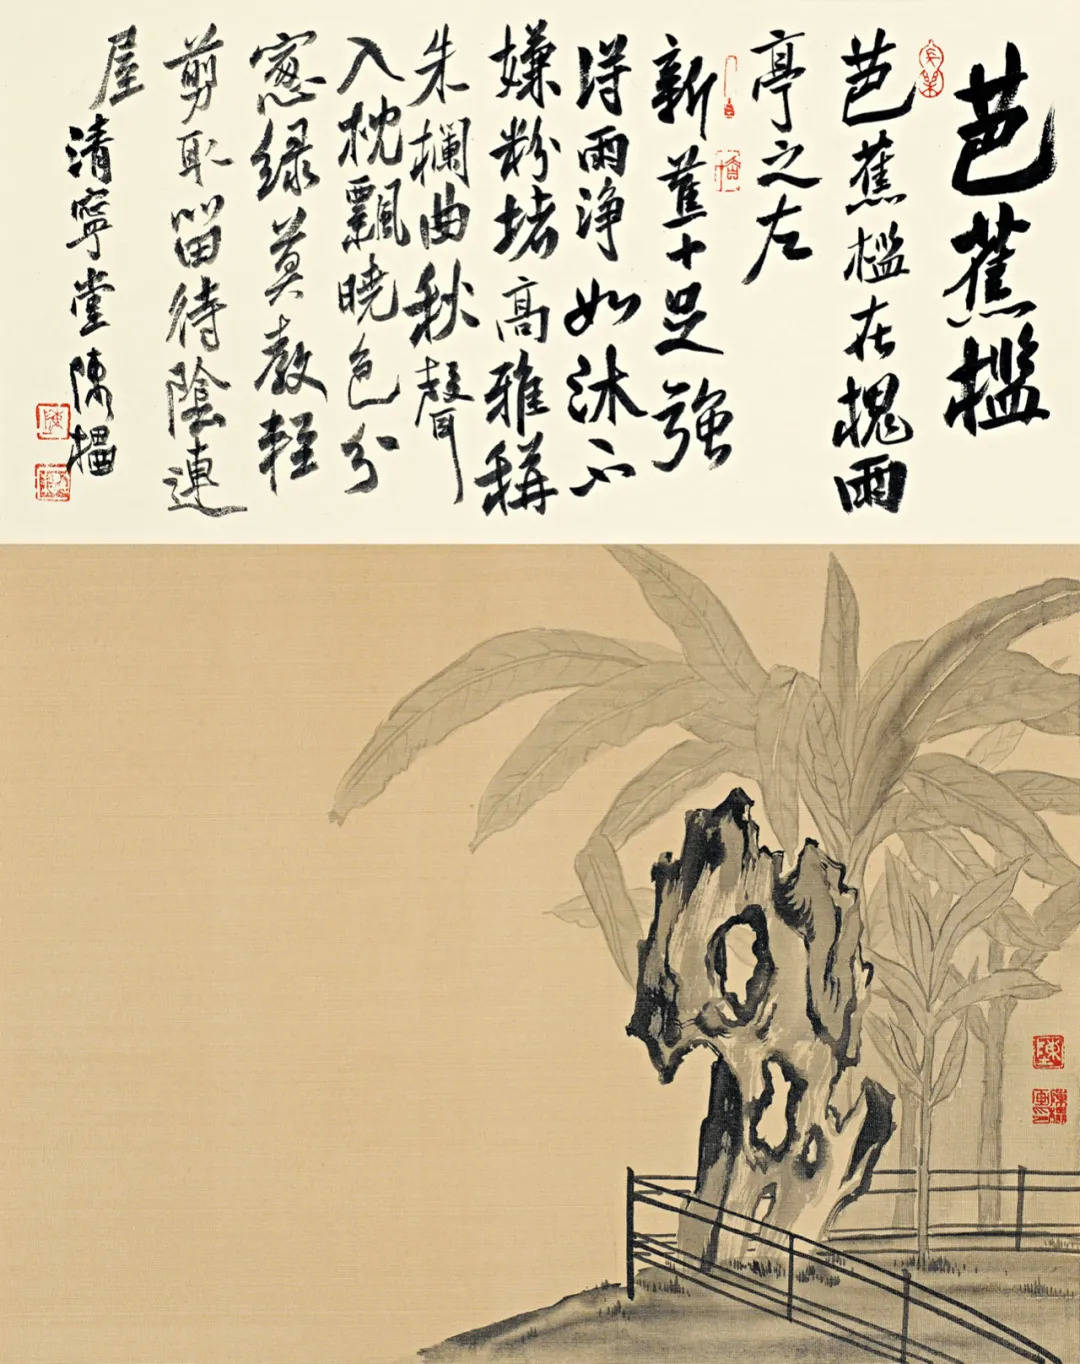 芭蕉檻
芭蕉檻在槐雨
亭之左
新蕉十足強
得雨淨如沐不
嫌粉堵高雅稱
朱欄曲秋聲
入枕飄曉色分
窻綠莫教輕
剪取留待陰連
屋
清寧堂陳
陳